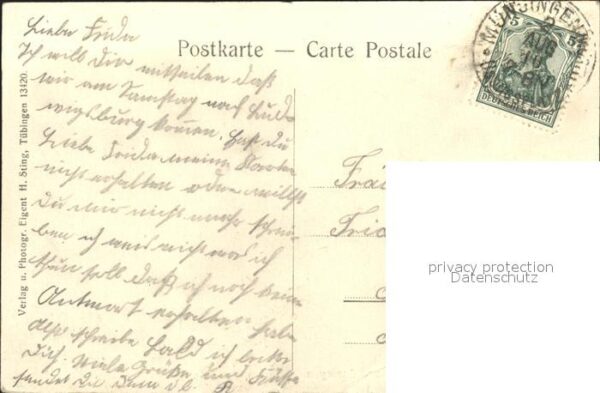 Postkarte — Carte Postale
Liebe Frida
Ich will dir mitteilen daß
wir am Samstag nach Lud-
wigsburg kommen. Hast du
Liebe Frida meine Karte
nicht erhalten oder willst
du mir nicht mehr schrei-
ben ich weis nicht was ich
thun soll daß ich noch keine
Antwort erhalten habe
also schreibe bald ich
Dich. Viele Grüße und Küsse
sendet dir Dein
Verlag u. Photogr. Eigent H. Sting, Tübingen 13120.
MÜNSINGEN
2
AUG
10
5 5
DEUTSCHES REICH
Frida
privacy protection
Datenschutz